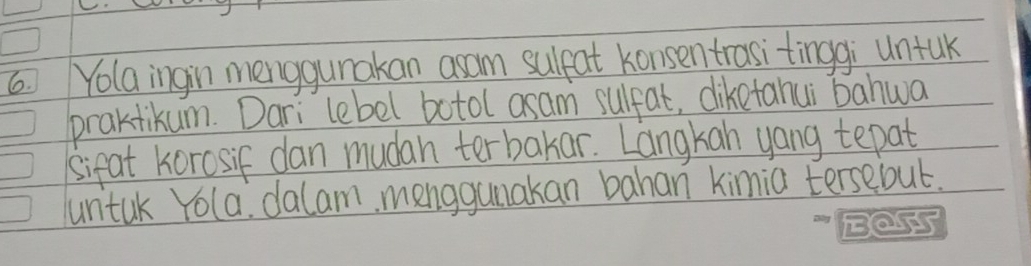 6. Yola ingin menggunakan asam sulfat konsentrasi tinggi untuk
praktikum. Dari lebel botol asam sulfat, diketahui bahwa
sifat korosif dan mudah terbakar. Langkah yang tepat
untuk Yola. dalam menggunakan bahan kimia tersebut.
BOSS